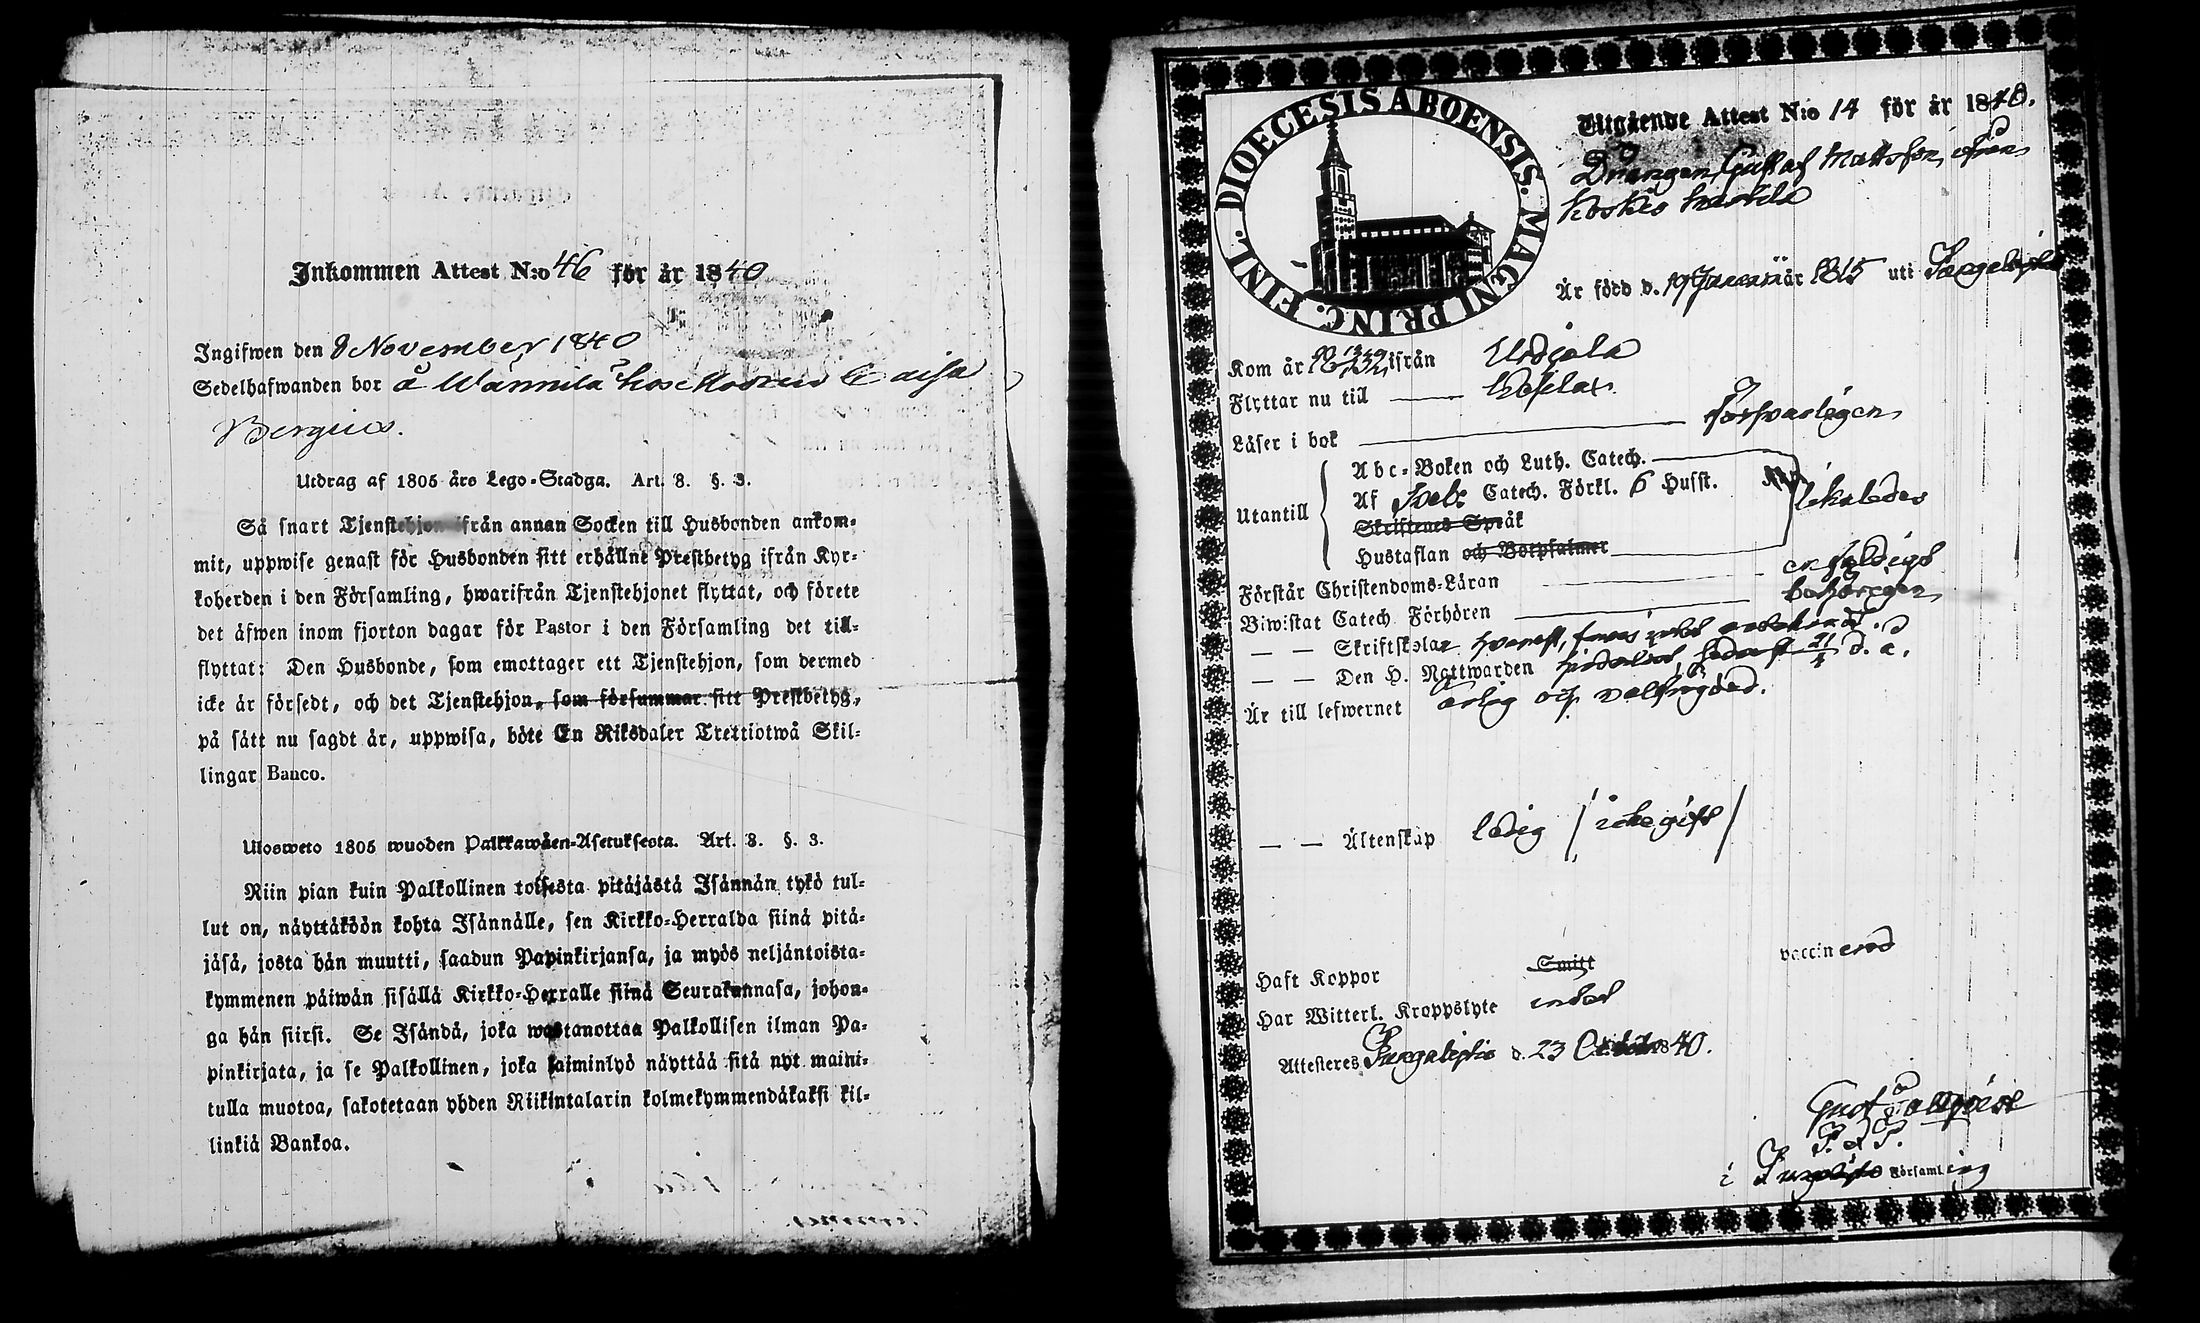 Inkommen Attest N:o 46 för år 1840
Ingifwen den 8 November 1840
Sedelhafwanden bor å Wännilä hos Madam Caisa
Bergius.
Utdrag af 1805 års Lego-Stadga. Art. 8. §. 3.
Så snart Tjenstehjon ifrån annan Socken till Husbonden ankom-
mit, uppwise genast för Husbonden sitt erhållne Prestbetyg ifrån Kyr-
koherden i den Församling, hwarifrån Tjenstehjonet flyttat, och förete
det äfwen inom fjorton dagar för Pastor i den Församling det till-
flyttat: Den Husbonde, som emottager ett Tjenstehjon, som dermed
icke är försedt, och det Tjenstehjon, som försummar sitt Prestbetyg,
på sätt nu sagdt är, uppwisa, böte En Riksdaler Trettiotwå Skil-
lingar Banco.
Ulosweto 1805 wuoden Palkkawäen-Asetuksesta. Art. 8. §. 3.
Niin pian kuin Palkollinen toisesta pitäjästä Isännän tykö tul-
lut on, näyttäköön kohta Isännälle, sen Kirkko-Herralda siinä pitä-
jäsä, josta hän muutti, saadun Papinkirjansa, ja myös neljäntoista-
kymmenen päiwän sisällä Kirkko-Herralle siinä Seurakunnasa, johon-
ga hän siirsi. Se Isändä, joka wastanottaa Palkollisen ilman Pa-
pinkirjata, ja se Palkollinen, joka laiminlyö näyttää sitä nyt maini-
tulla muotoa, sakotetaan yhden Riikintalarin kolmekymmendäkaksi kil-
linkiä Bankoa.
DIOECESIS ABOENSIS. MAGNI PRINC. FINL.
Utgående Attest N:o 14 för år 1840.
Drängen Gustaf Mattsson, ifrån
Koskis
Är född d. 19 Januarii år 1815 uti
Kom år ifrån Urdiala
Flyttar nu till
Läser i bok försvarligen
Abc-Boken och Luth. Catech.
Utantill Af Sveb. Catech. Förkl. 6 Husst.
Skriftenes Språk
Hustaflan och Botpsalmer
Förstår Christendoms-Läran enfaldigt
Biwistat Catech. Förhören behörigen
— — Skriftskolar
— — Den H. Nattwarden d. a.
Är till lefwernet ärlig och välfrägdad.
— — Äktenskap ledig / icke gift /
Haft Koppor Smitt vaccinerad
Har Witterl. Kroppslyte intet
Attesteres d. 23 October 1840.
i Församling